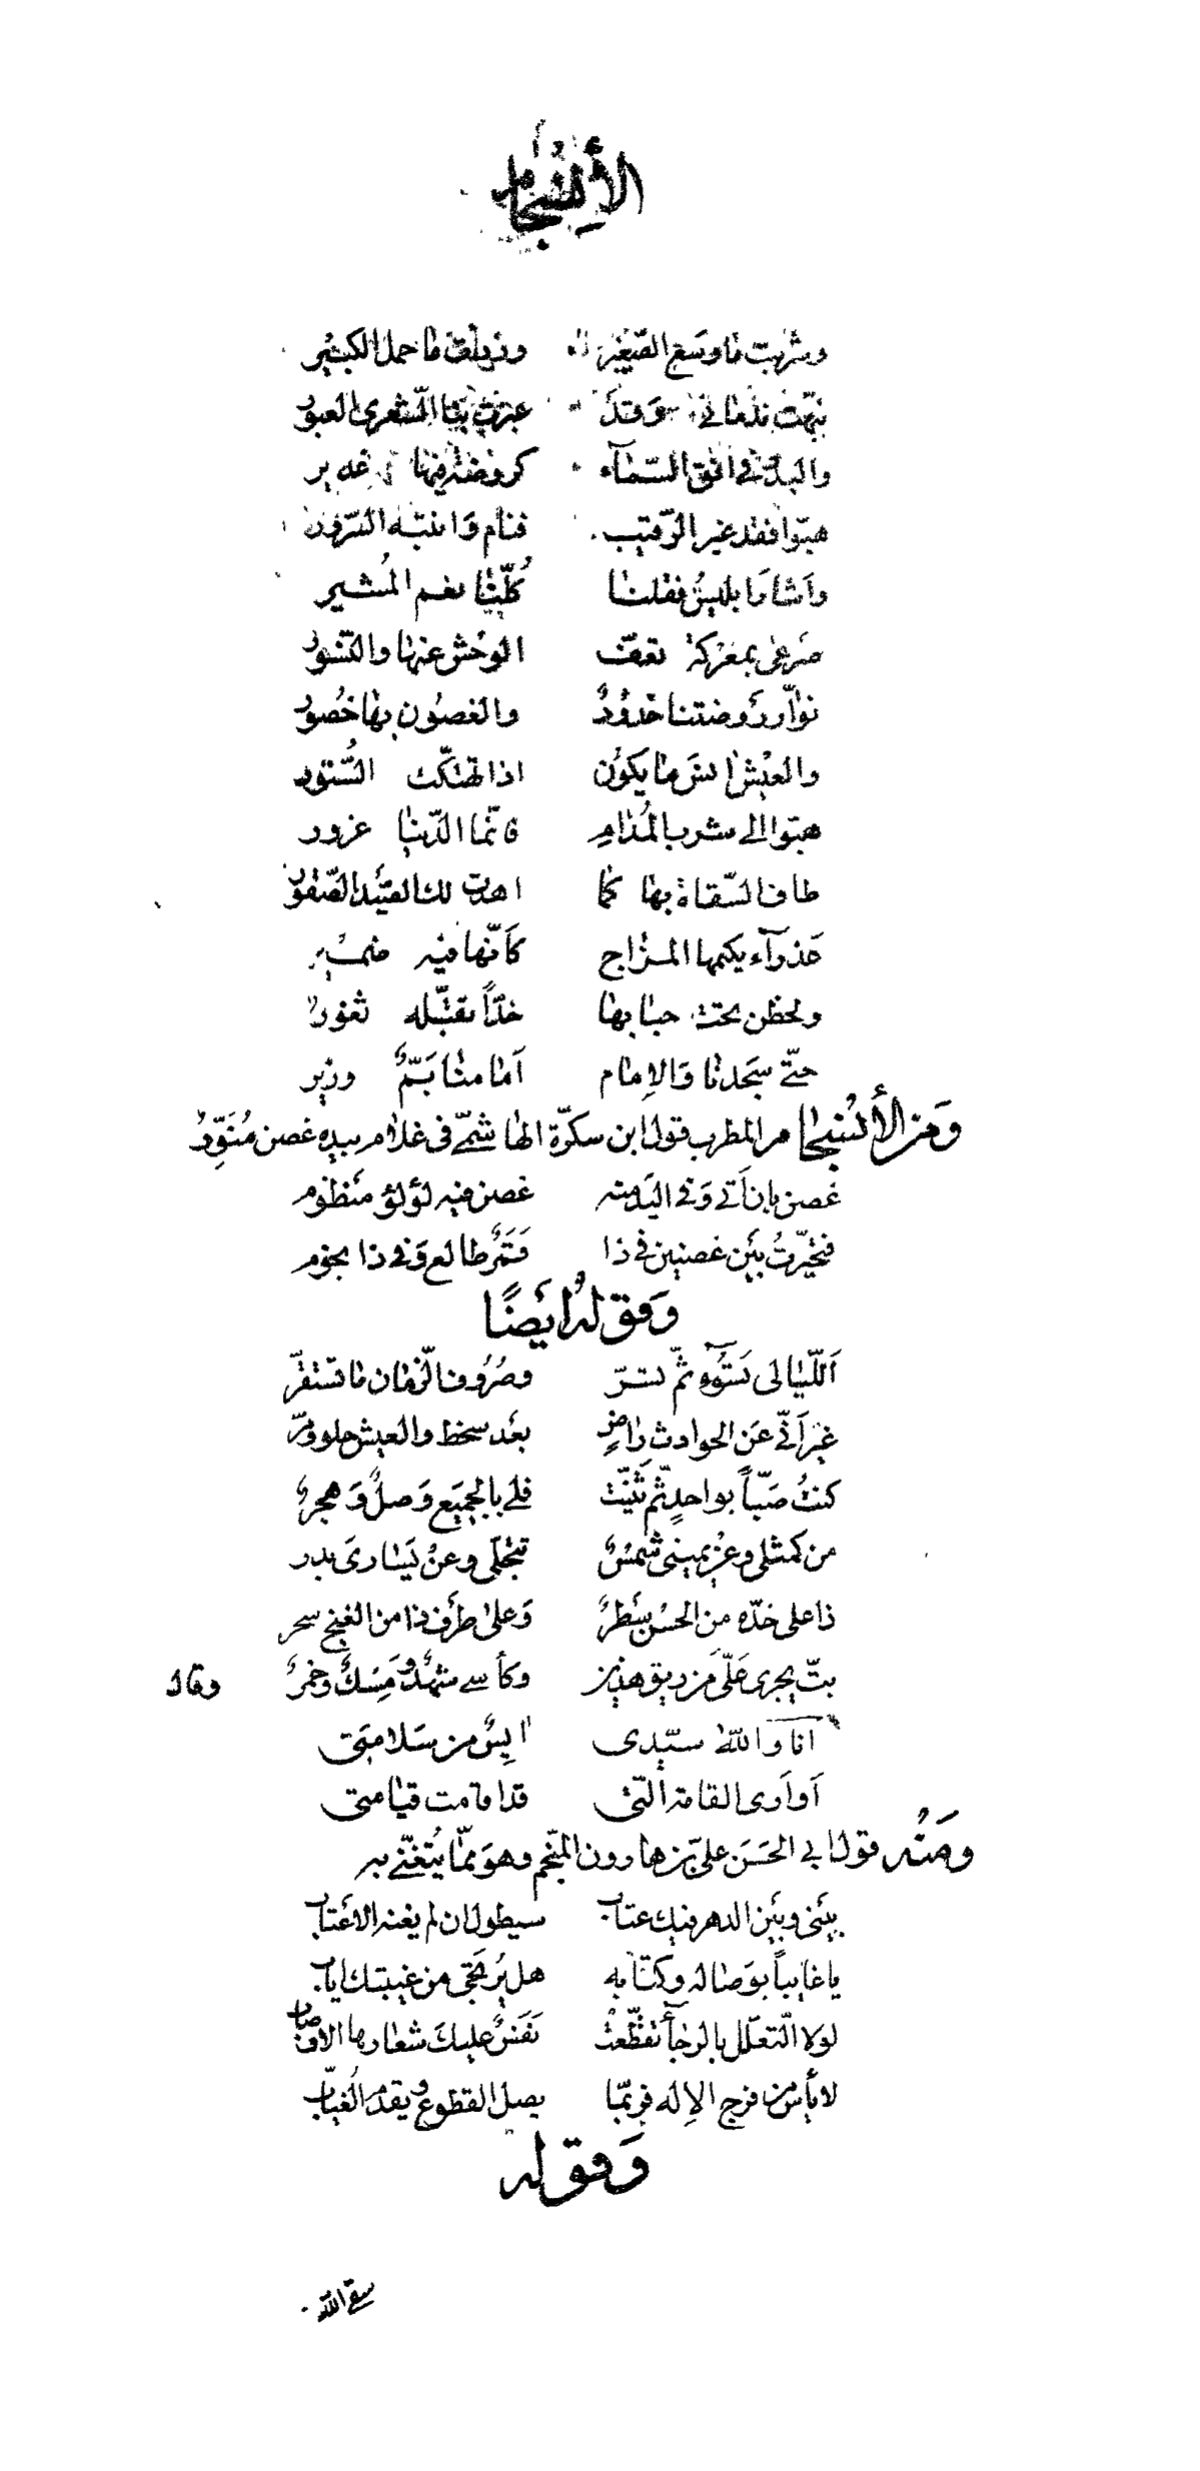 الأنسجام
وشربت ما وسع الصغير وزدت ما حمل الكبير
نبهت ندماني وقد عبرت بنا الشعرى العبور
والبدر في افق السماء كروضة فيها غدير
هبّوا فقد غير الرقيب فنام وَانتبه السرور
واشار ابليس فقلنا كُلّنا نعم المُشير
صرعى بمعركة تعفّ الوحش عنها والنسور
نوّار رَوضتنا خدودٌ والغصُون بها خصُور
والعيش اسرّ ما يكون اذا تهتّكت السُّتور
هبّوا الى شرب المُدام فانّما الدّنيا غرور
طاف السّقاة بها كما اهدت لك الصّيد الصّقور
عَذرآء يكتمها المزاج كَأنّها فيه ضمير
وتحظن تحت حبابها خدّاً تقبّله ثغور
حتّى سجَدنا وَالإِمام اَمامنا بَمٌّ وزير
وَمن الأنسجام المطرب قول ابن سكّرة الهاشمّي فى غلام بيده غصن مُنَوِّرٌ
غصن بان اَتى وَفى اليَد منه غصن فيه لؤلؤ مَنظوم
فتحيّرتُ بَين غصنين فى ذا قَمَرٌ طالع وَفى ذا نجوم
وَقوله أَيضًا
اَللّيالى تَسُوء ثمّ تسرّ وصُرُوف الزّمان ما تستقرّ
غيرَ اَنّى عَن الحوادث راضٍ بعَد سخط والعيش حلو ومرّ
كنتُ صَبّاً بواحدٍ ثم ثنّيت فلى بالجميَع وَصلٌ وَهجرٌ
من كمثلى وعن يمينى شمسٌ تتجلّى وعنْ يَسارىَ بدر
ذا على خدّه من الحسْن سَطرٌ وَعلى طرَف ذا من الغنج سحر
بتّ يجرى عَلّى من ريق هذين وكأسى شهدٌ وَمِسْكٌ وخمرٌ وقال
انا وَالله سيّدى ايسٌ من سَلامتى
اَو اَرى القامة الّتى قد اقامت قيامتى
ومَنْه قول ابى الحَسَن علىّ بن هارون المنّجم وهوَ ممّا يُتغنّى به
بيَنى وبيَن الدهر فيك عتاب سيطول ان لم يفنه الاعتاب
يا غايباً بوَصاله وكتابه هل يُرتجى من غيبتك اياب
لولا التّعلّل بالرجآء تقطّعت نَفَسٌ عليكَ شعارها الاوصاب
لا يأس من فرج الإله فربّما يصل القطوع ويقدم الغيّاب
وَقوله
سقى الله